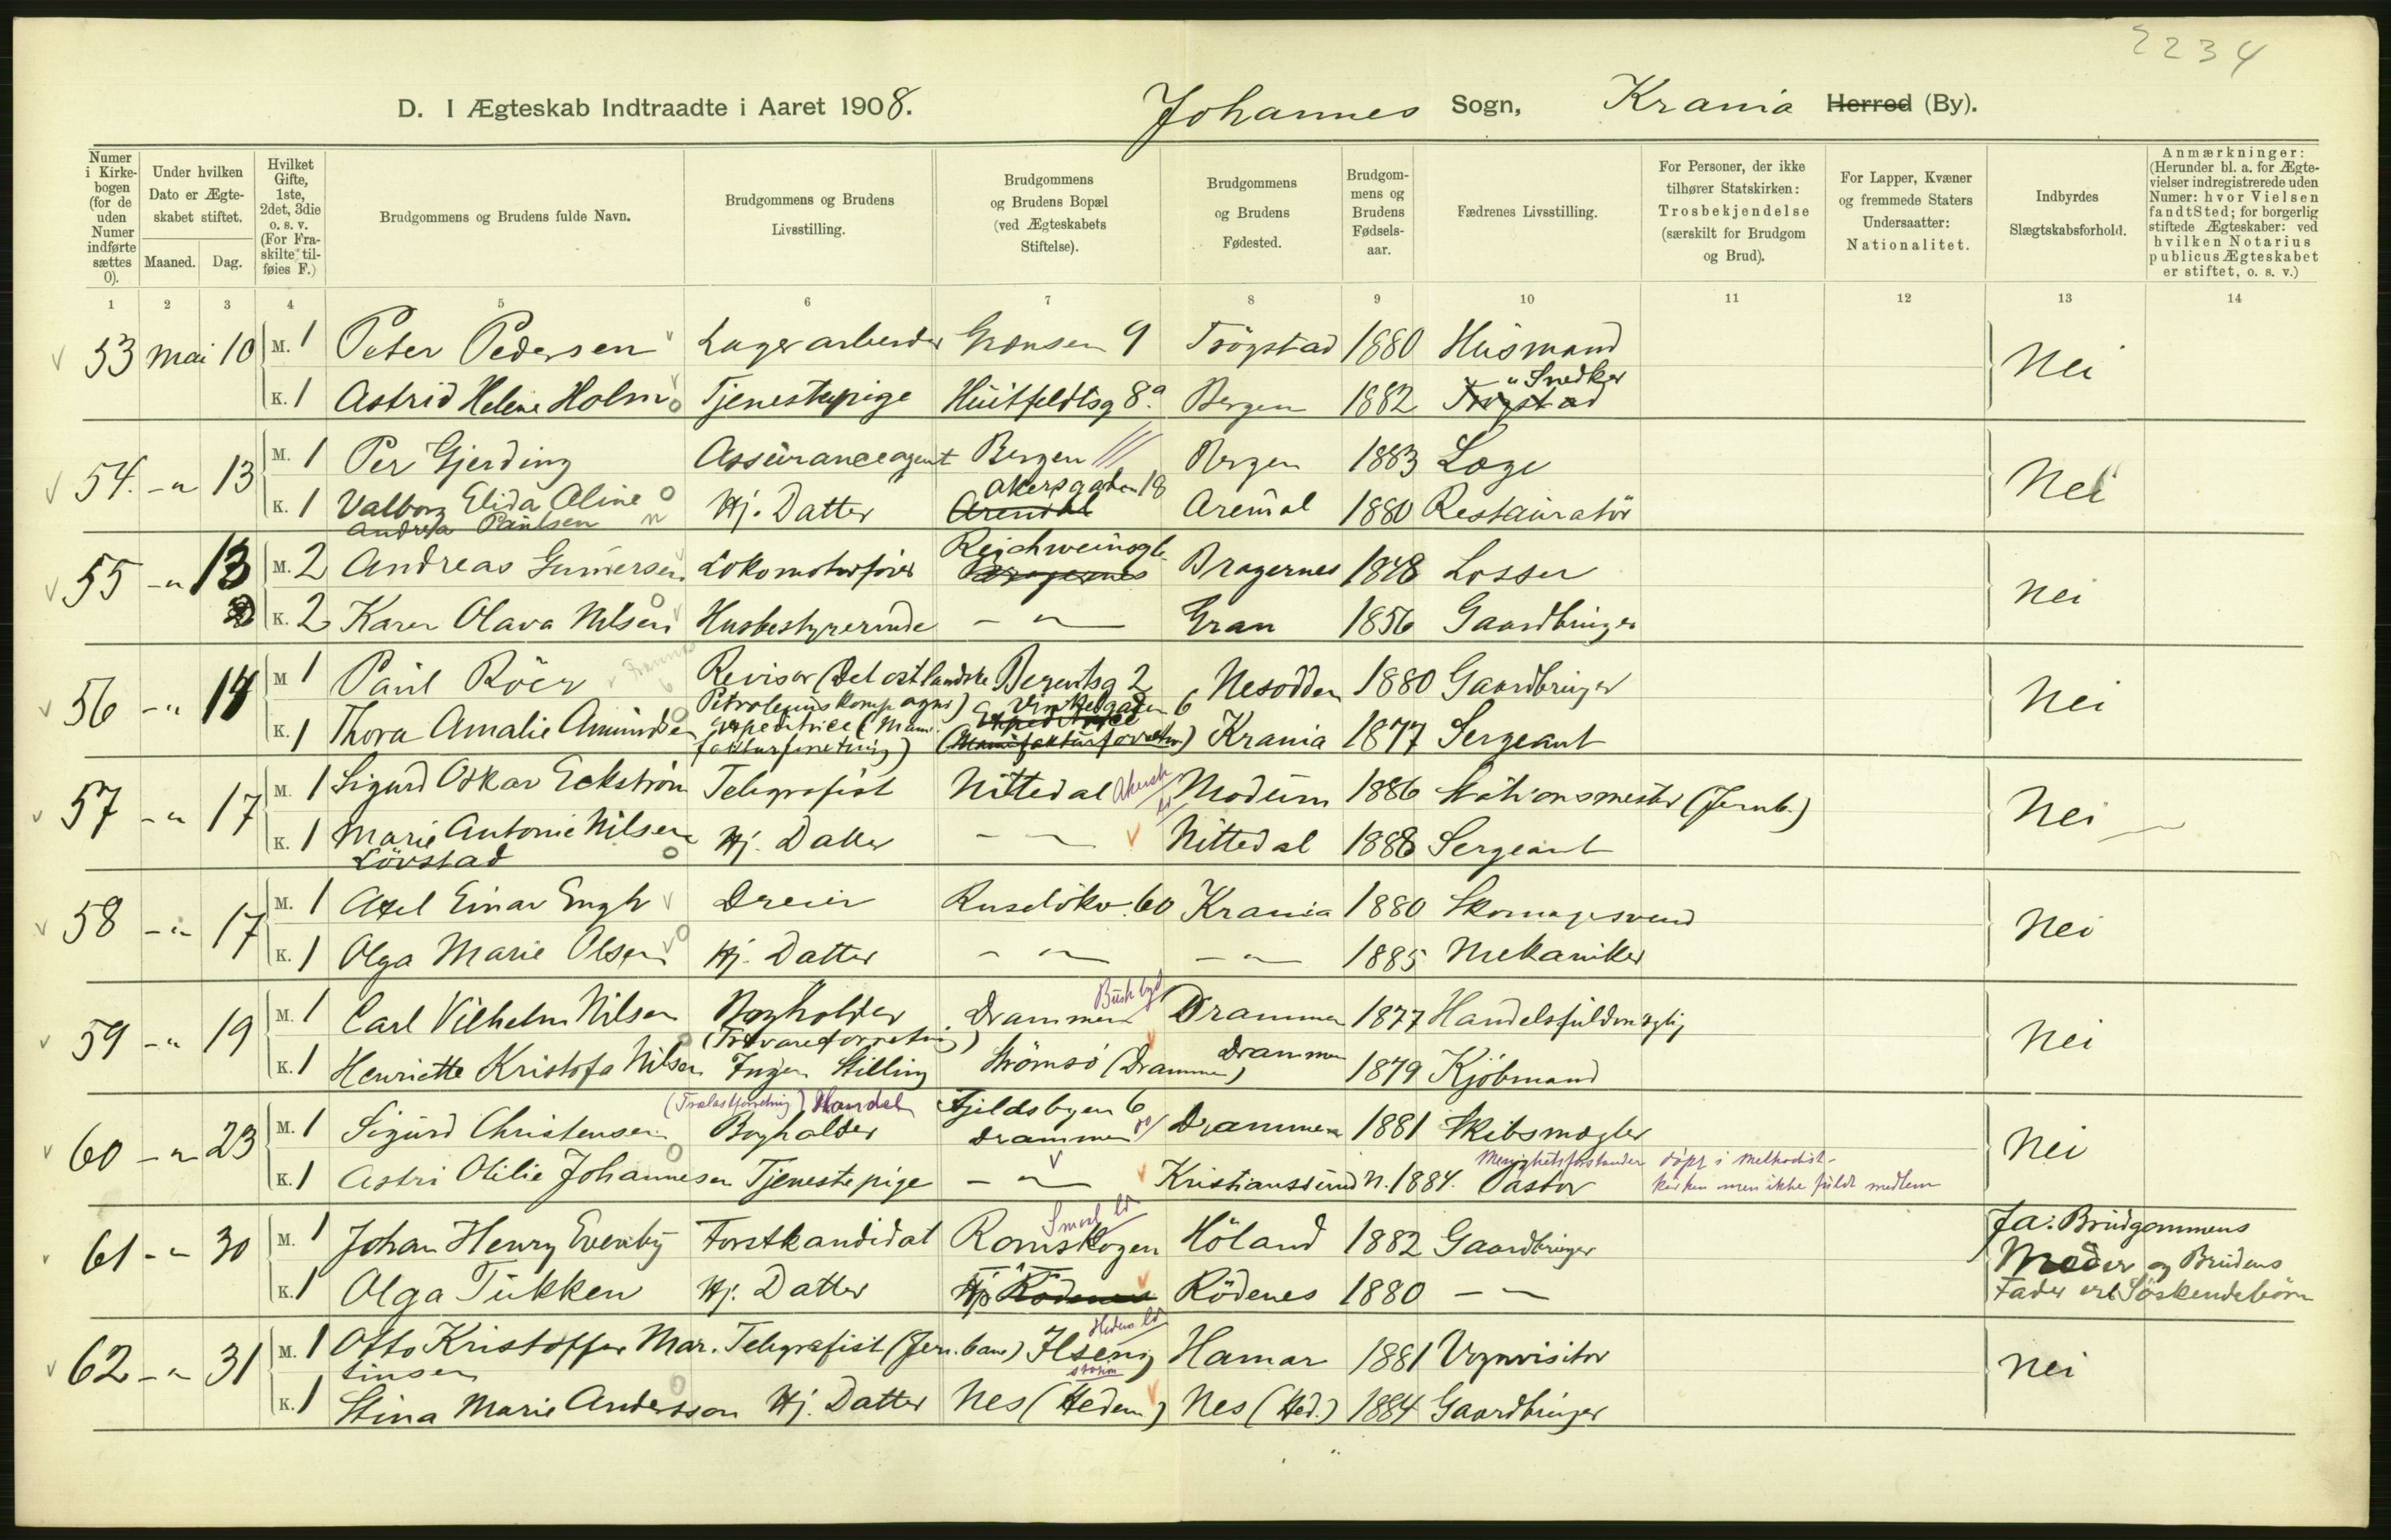 2234
D. I Ægteskab Indtraadte i Aaret 1908. Johannes Sogn, Krania Herred (By).
Numer i Kirkebogen (for de uden Numer indførte sættes 0).
Under hvilken Dato er Ægteskabet stiftet.
Maaned. Dag.
Hvilket Gifte, 1ste, 2det, 3die o. s. v. (For Fraskilte tilføies F.)
Brudgommens og Brudens fulde Navn.
Brudgommens og Brudens Livsstilling.
Brudgommens og Brudens Bopæl (ved Ægteskabets Stiftelse).
Brudgommens og Brudens Fødested.
Brudgommens og Brudens Fødselsaar.
Fædrenes Livsstilling.
For Personer, der ikke tilhører Statskirken: Trosbekjendelse (særskilt for Brudgom og Brud).
For Lapper, Kvæner og fremmede Staters Undersaatter: Nationalitet.
Indbyrdes Slægtskabsforhold.
Anmærkninger: (Herunder bl. a. for Ægtevielser indregistrerede uden Numer: hvor Vielsen fandt Sted; for borgerlig stiftede Ægteskaber: ved hvilken Notarius publicus Ægteskabet er stiftet, o. s. v.)
1 2 3 4 5 6 7 8 9 10 11 12 13 14
53 mai 10 M. 1 Peter Pedersen Lagerarbeider Grænsen 9 Trögstad 1880 Husmand Nei
K. 1 Astrid Helene Holm Tjenestepige Huitfeldtsg 8a Bergen 1882 Trögstad Snedker
54. -"- 13 M. 1 Per Gjerding Assuranceagent Bergen Bergen 1883 Læge Nei
K. 1 Valborg Elida Aline Andrea Paulsen Hj. Datter Arendal Akersgaden 18 Arendal 1880 Restauratör
55 -"- 13 M. 2 Andreas Gundersen Lokomotivfører Reichweinsgt. Bragernes Bragernes 1848 Losser Nei
K. 2 Karen Olava Nilsen Husbestyrerinde -"- Gran 1856 Gaardbruger
56 -"- 14 M 1 Paul Röer Revisor (Det østlandske Petroleumskompagni) Berentsg 2 Nesodden 1880 Gaardbruger Nei
K. 1 Thora Amalie Amundsen Expeditrice (Manufakturforretning) Vinkelgaden 6 Expeditrice (Manufakturforretn.) Krania 1877 Sergeant
57 -"- 17 M. 1 Sigurd Oskar Eckström Telegrafist Nittedal Akersh Modum 1886 Stationsmester (Jernb.) Nei
K. 1 Marie Antonie Nilsen Lövstad Hj. Datter -"- Nittedal 1888 Sergeant
58 -"- 17 M. 1 Axel Einar Engh Dreier Ruselökv. 60 Krania 1880 Skomagersvend Nei
K. 1 Olga Marie Olsen Hj. Datter -"- -"- 1885 Mekaniker
59 -"- 19 M. 1 Carl Vilhelm Nilsen Bogholder Drammen Buskbygd Drammen 1877 Handelsfuldmægtig Nei
K. 1 Henriette Kristofa Nilsen Ingen Stilling Strömsö (Drammen) Drammen 1879 Kjöbmand
60 -"- 23 M. 1 Sigurd Christensen (Trælastforretning) Handel Bogholder Fjeldsbyen 6 Drammen Drammen 1881 Skibsmægler Nei
K. 1 Astri Otilie Johannesen Tjenestepige -"- Kristianssund N. 1884. Menighetsforstander Pastor döpt i Methodist-
kirken men ikke fuldt medlem
61 -"- 30 M. 1 Johan Henry Evenby Forstkandidat Romskogen Smaal Höland 1882 Gaardbruger Ja: Brudgommens
K. 1 Olga Tukken Hj. Datter Rödenes Rödenes 1880 -"- Moder og Brudens
Fader ere Söskendebörn
62 -"- 31 M. 1 Otto Kristoffer Martinsen Telegrafist (Jernbane) Ilseng station Hamar 1881 Vognvisitør Nei
K. 1 Stina Marie Andersson Hj. Datter Nes (Hedem) Nes (Hed.) 1884 Gaardbruger